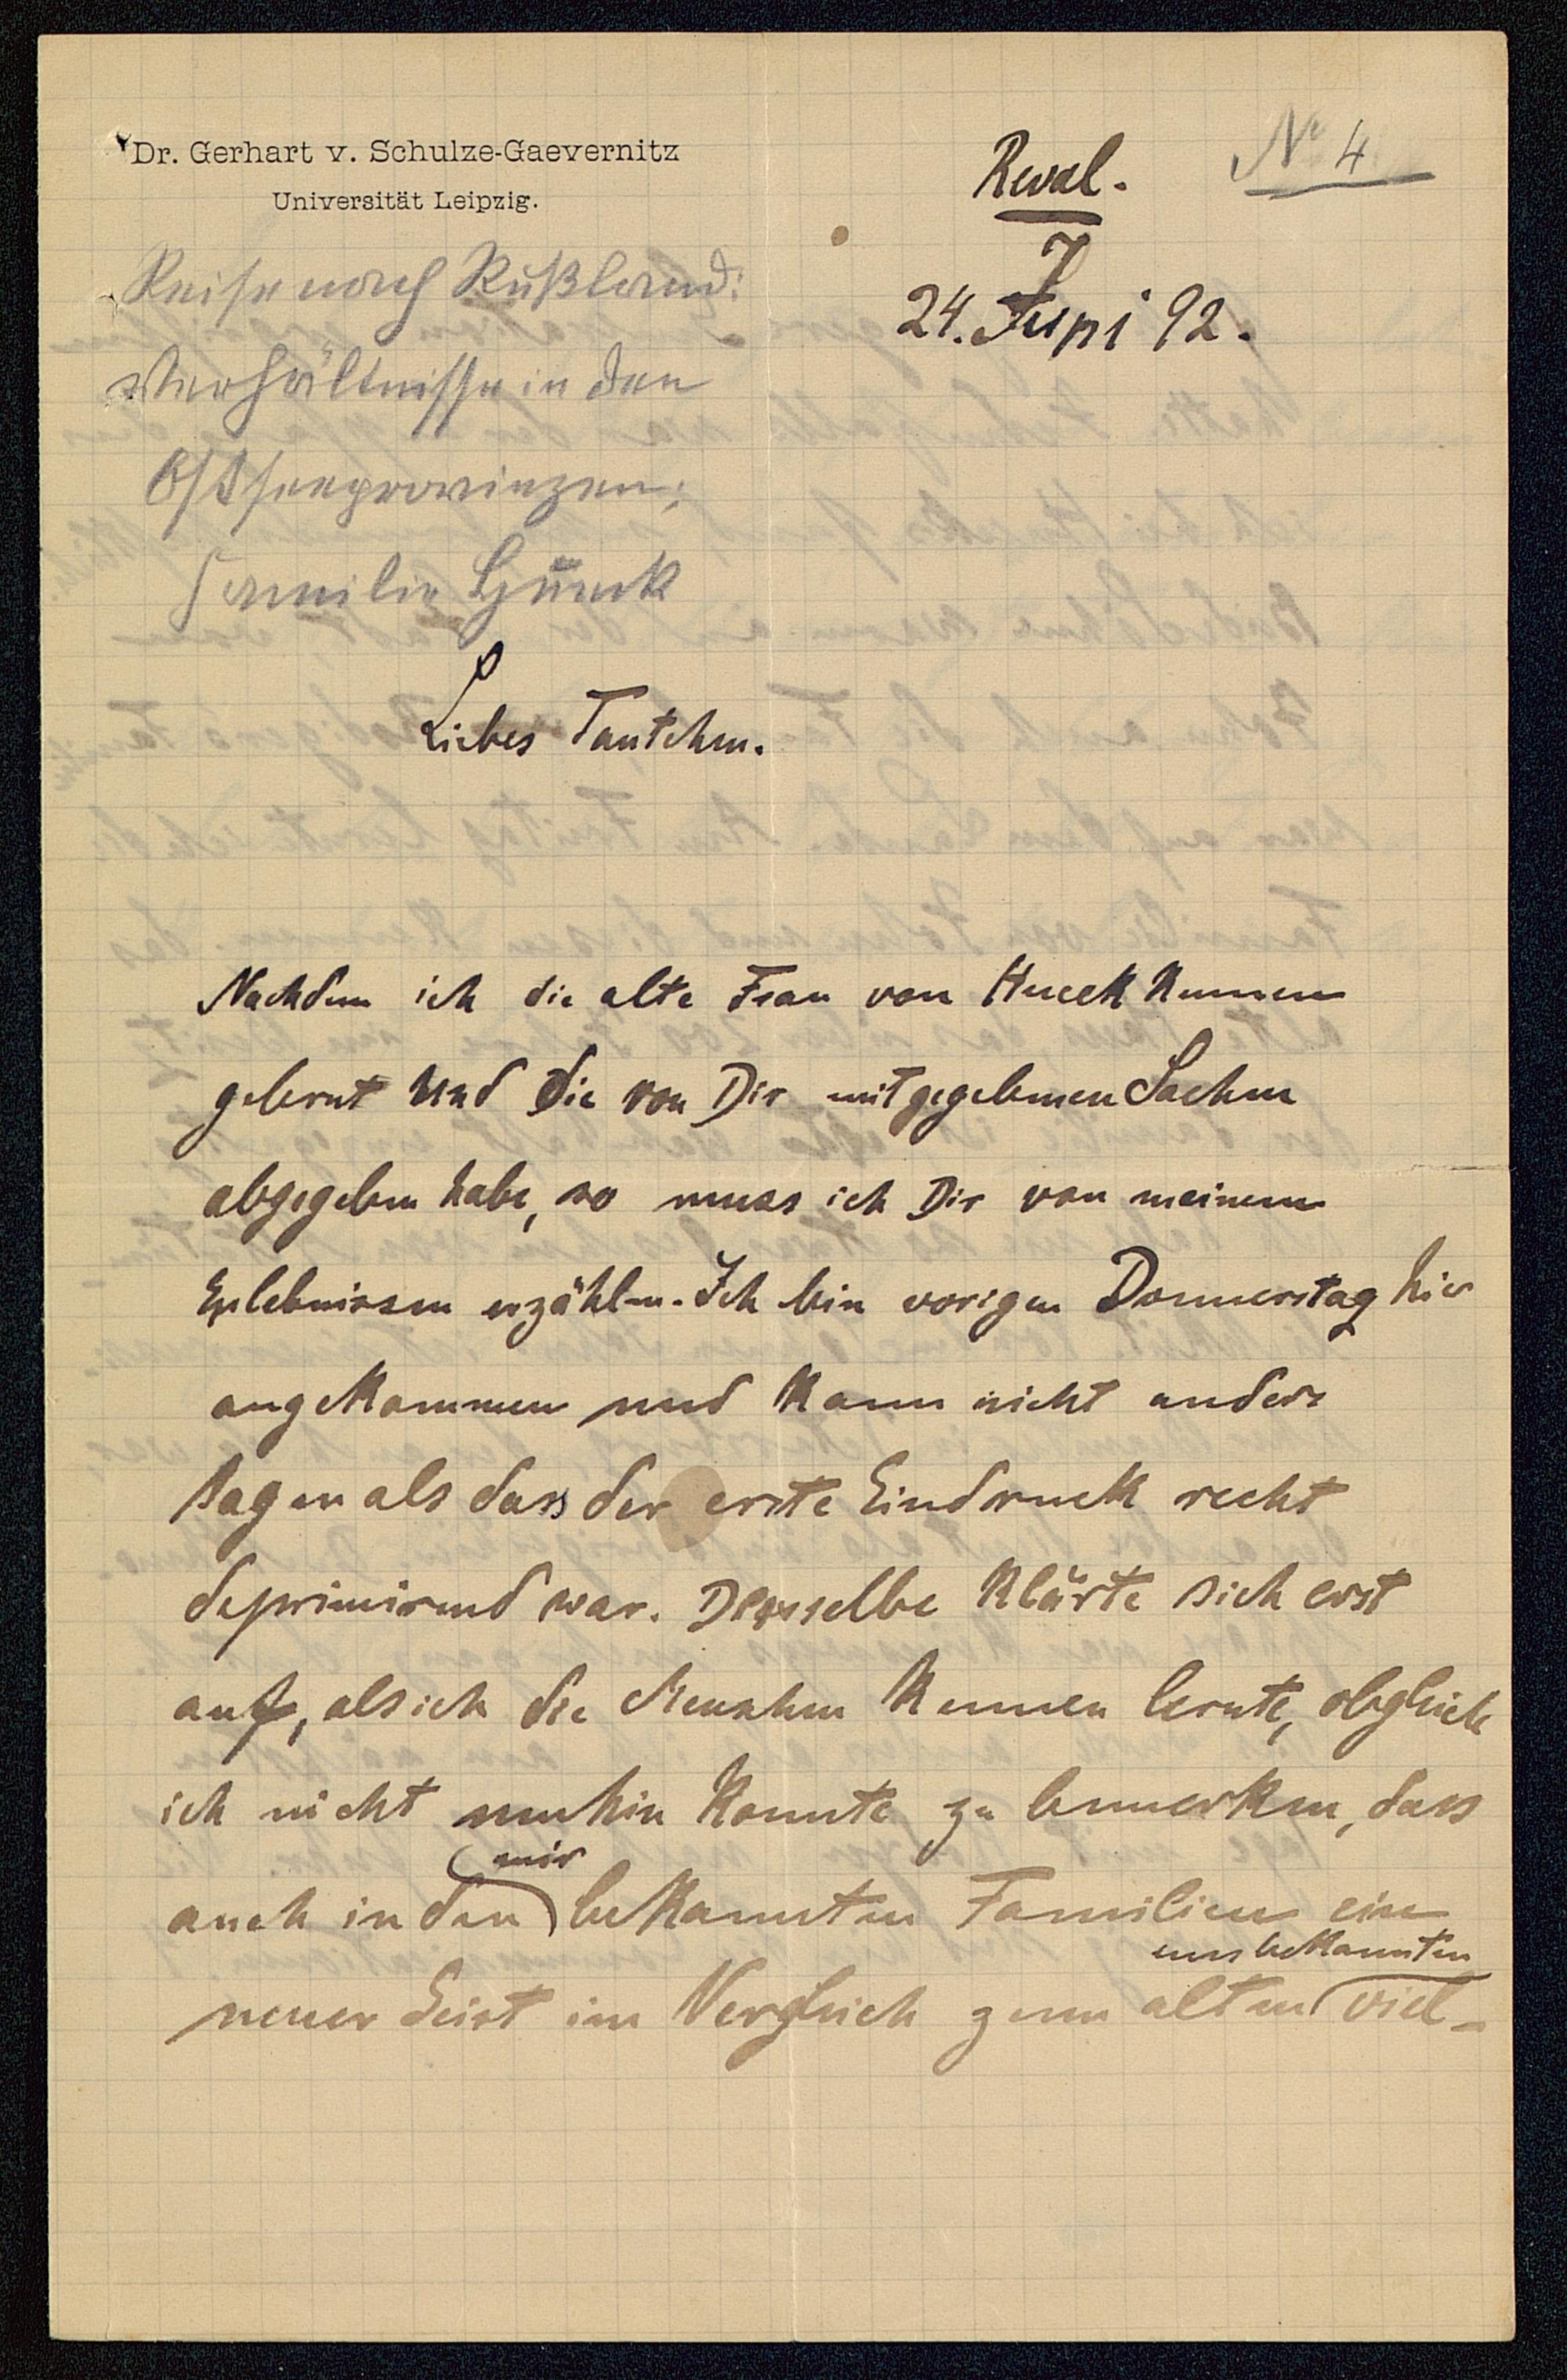 Dr. Gerhart v. Schulze-Gaevernitz
Universität Leipzig.
Reval.
No 4
24. Juni 92.
Reise nach Rußland:
Verhältnisse in den
Ostseeprovinzen;
Familie Hueck
Liebes Tantchen.
Nachdem ich die alte Frau von Hueck kennen
gelernt und die von Dir mitgegebenen Sachen
abgegeben habe, so muss ich Dir von meinem
Erlebnissen erzählen. Ich bin vorigen Donnerstag hier
angekommen und kann nicht anders
sagen als dass der erste Eindruck recht
deprimirend war. Derselbe klärte sich erst
auf, als ich die Menschen kennen lernte, obgleich
ich nicht umhin konnte zu bemerken, dass
auch in den mir bekannten Familien ein
neuer Geist im Vergleich zum alten uns bekannten viel-